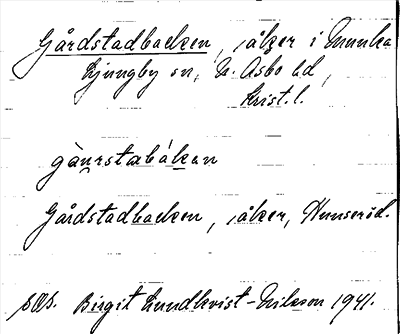 Gårdstadbacken, åker i Munka
Ljungby sn, N. Åsbo hd,
Krist. l.
gàu̯rstabákan
Gårdstadbacken, åker, Hunseröd.
Birgit Lundkvist-Nilsson 1941.